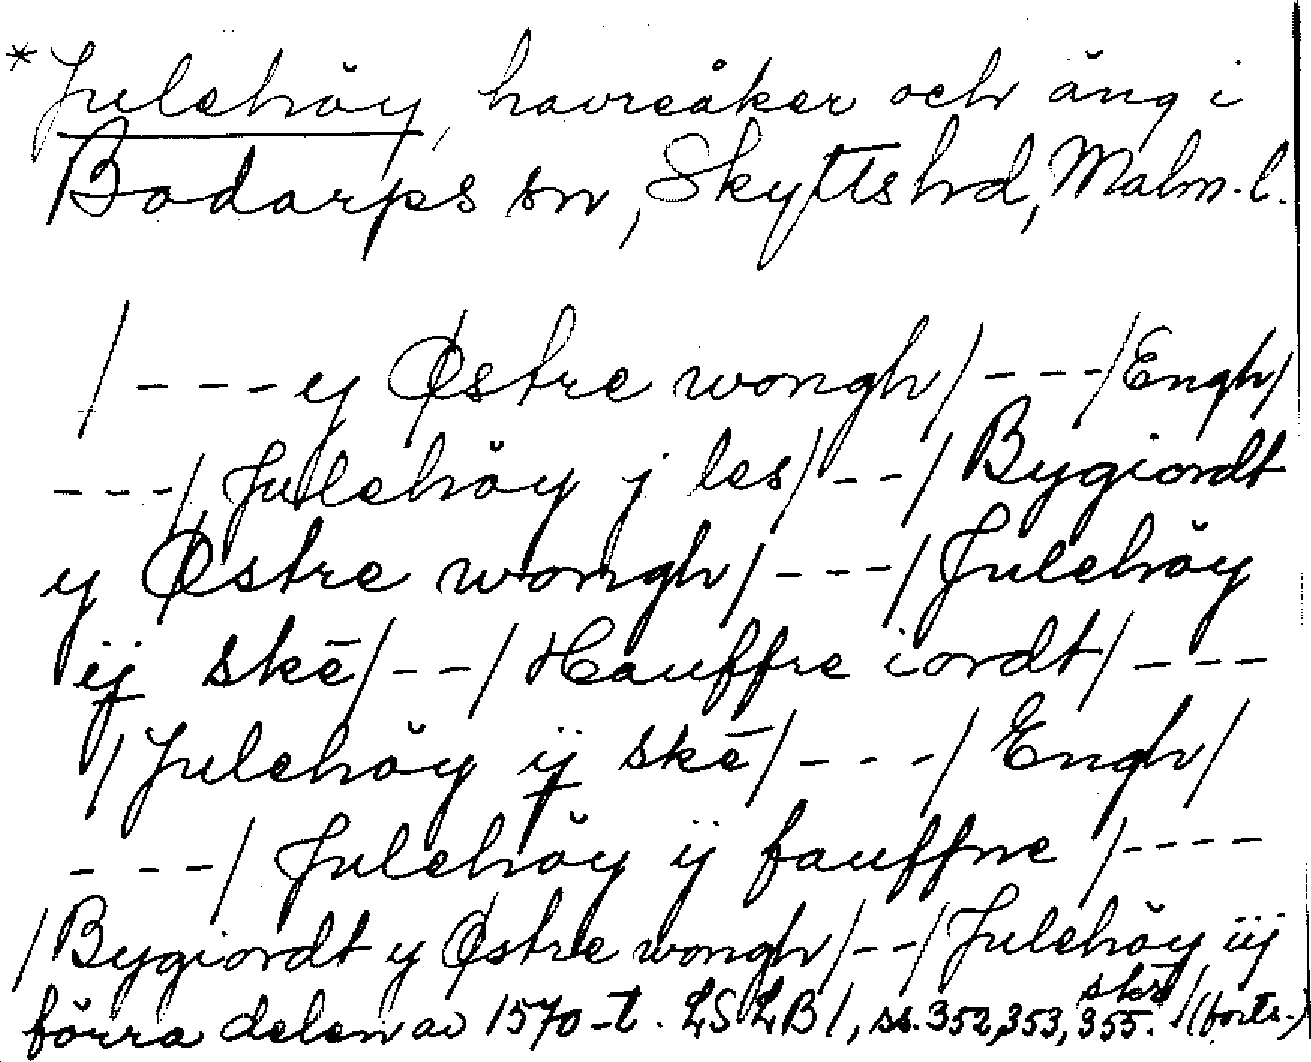 *Julehöy, havreåker och äng i
Bodarps sn, Skytts hd, Malm. l.
/ - - - y Østre wongh / - - - / Engh /
- - - / Julehöy j les / - - / Bygiordt
y Østre wongh / - - - / Julehöy
ij skē / - - / Hauffre iordt / - - -
/ Julehöy ij skē / - - - / Engh /
- - - / Julehöy ij fauffne / - - - -
/ Bygiordt y Østre wongh / - - / Julehöy iij
skē /
förra delen av 1570-t. LSLB 1, ss. 352, 353, 355. (forts.)